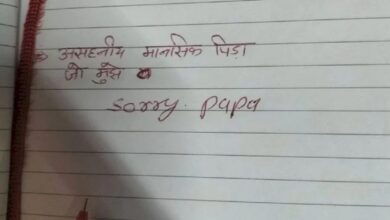 असहनीय मानसिक पिड़ा
जो मुझे
sorry. papa